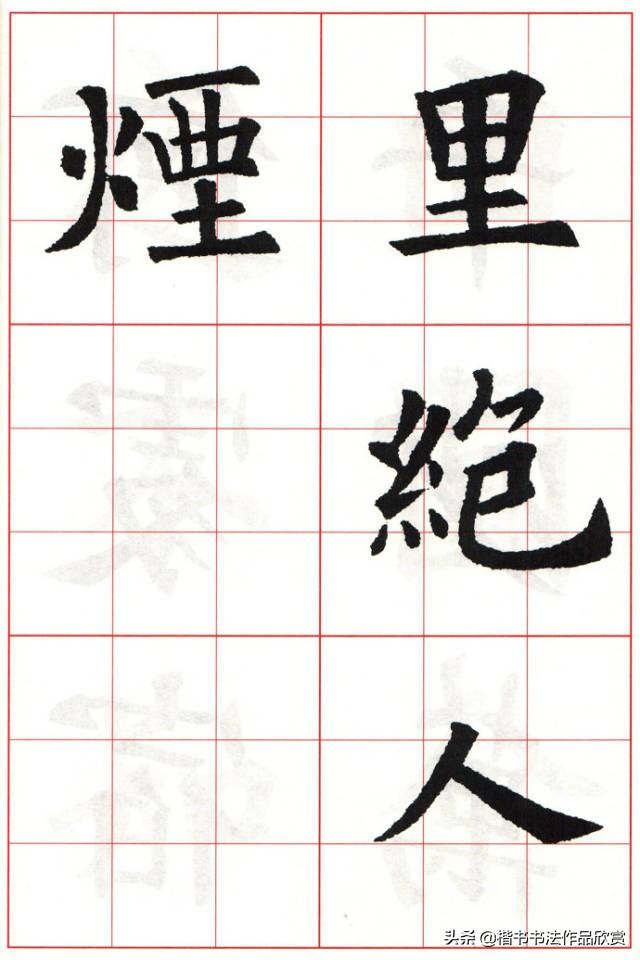 里絕人
煙
头条 @楷书书法作品欣赏